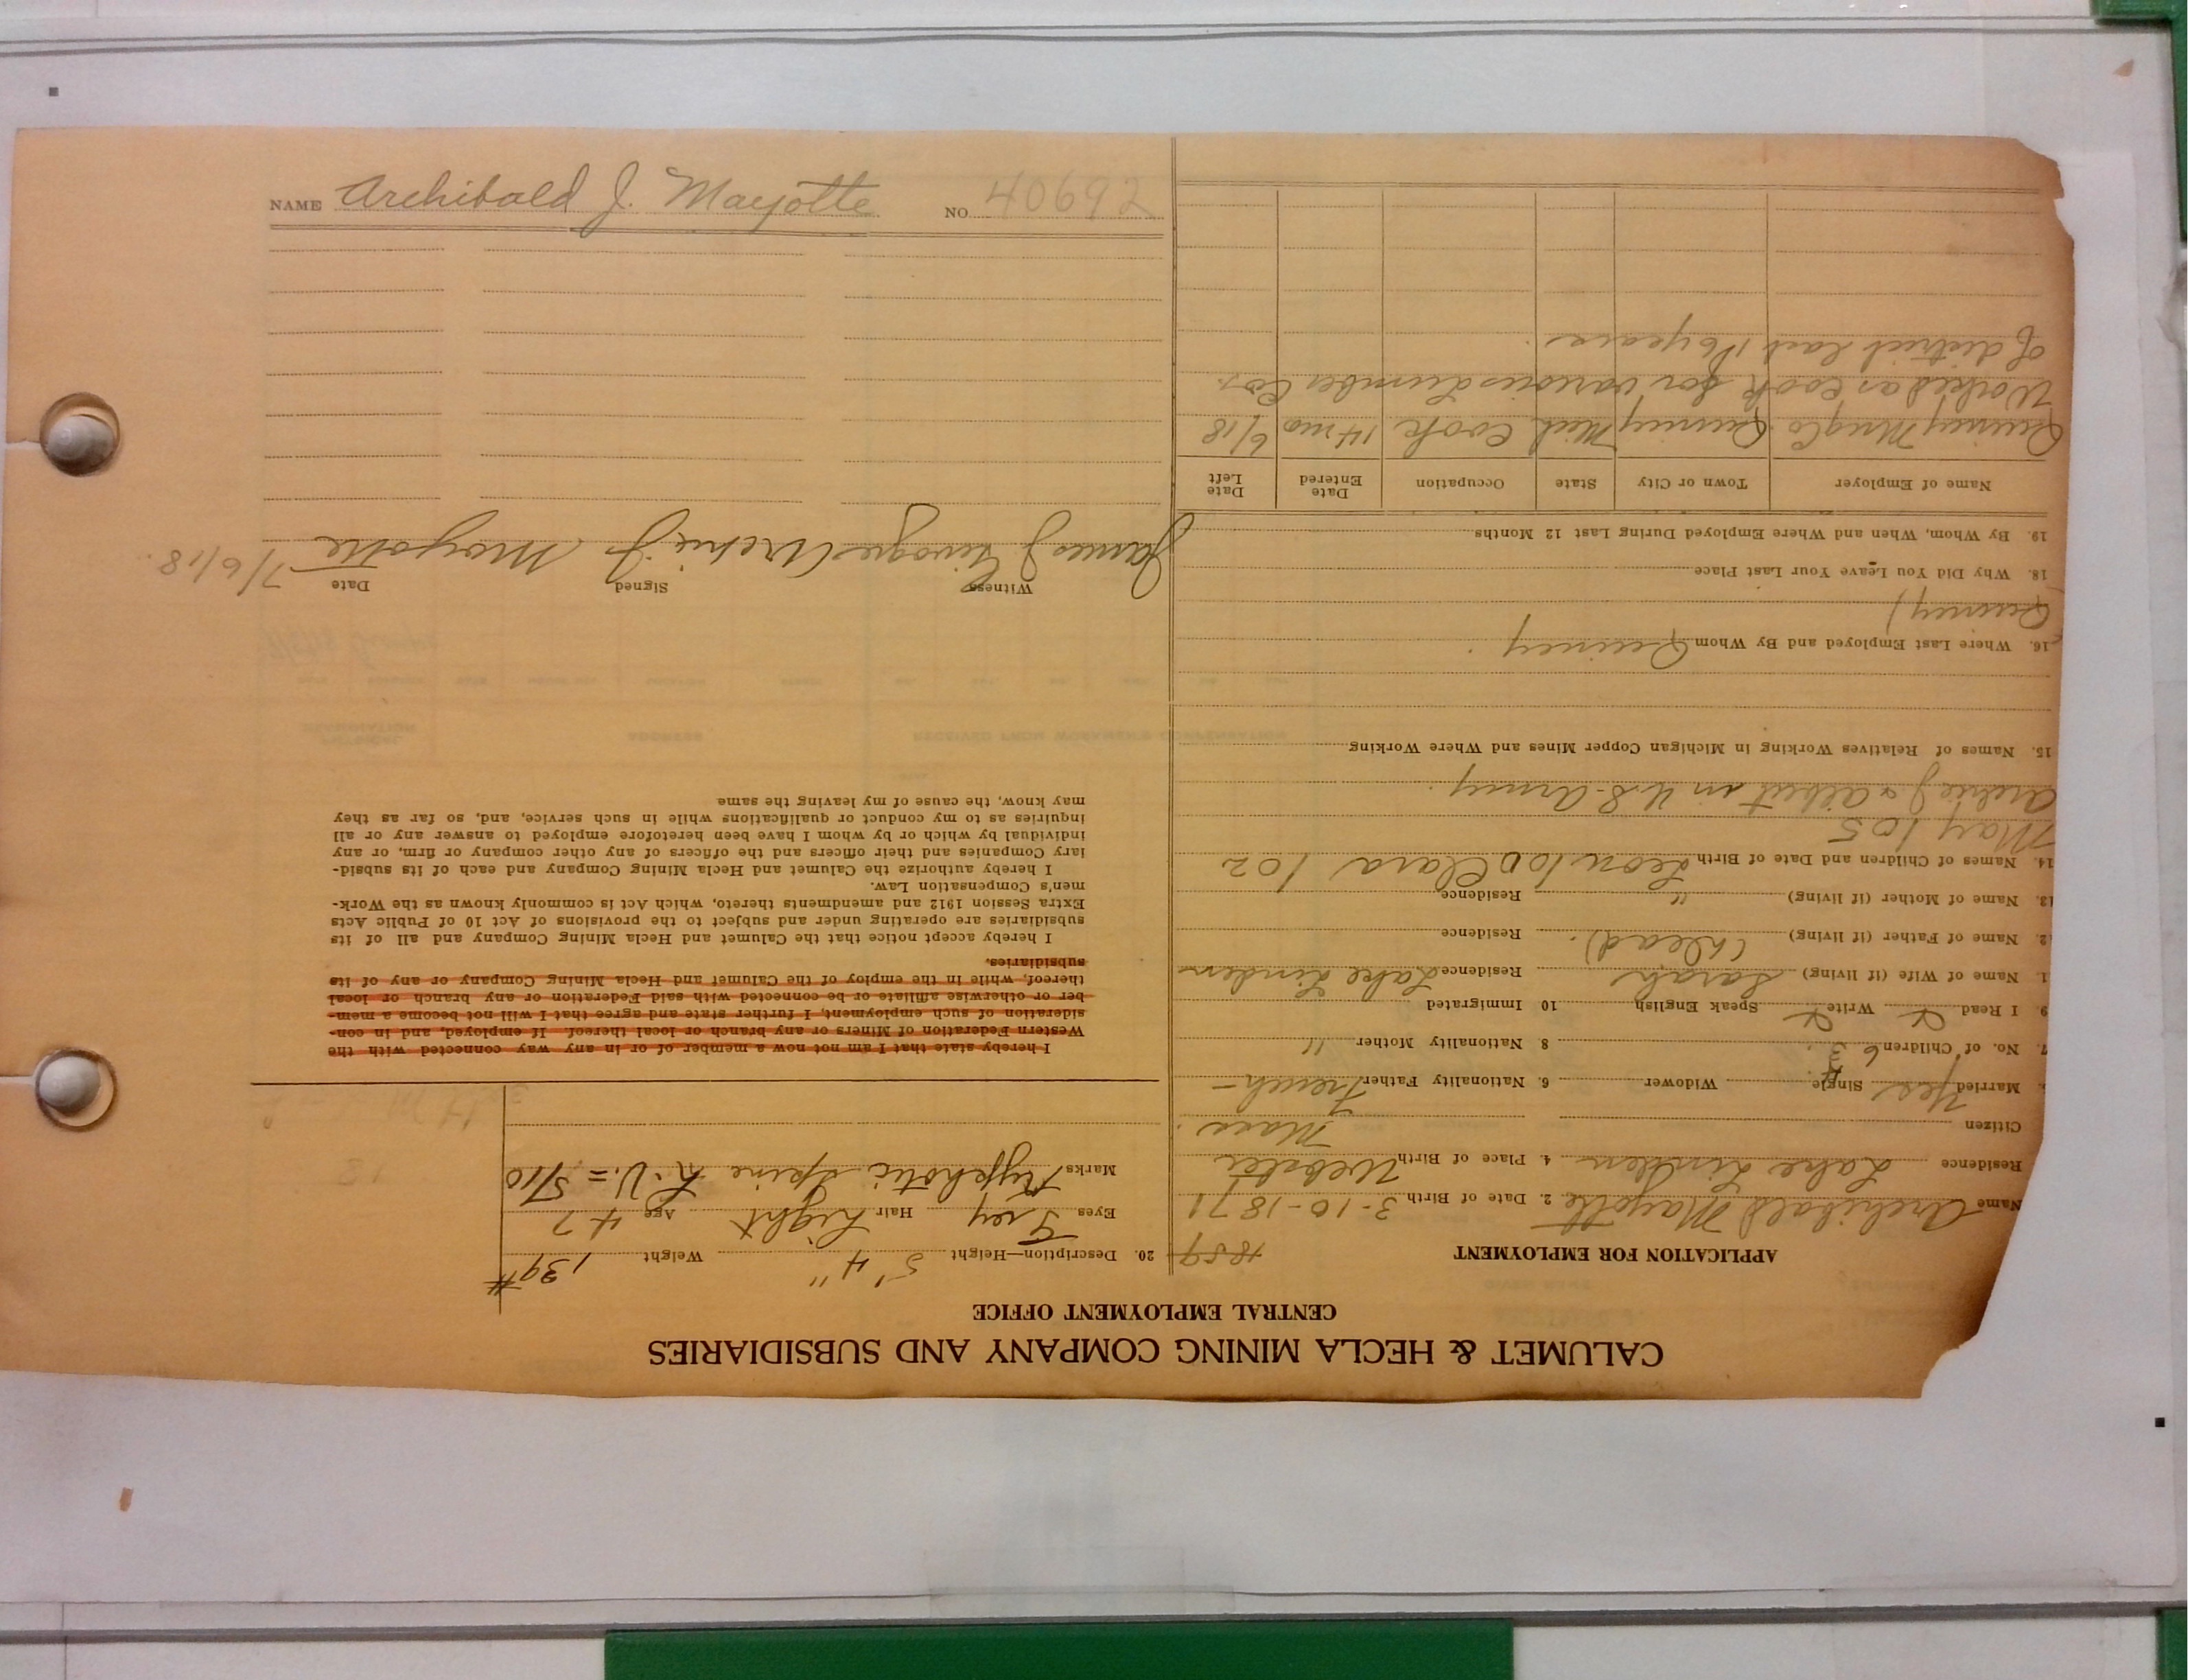 NAME Archibald J. Mayotte NO. 40692
CALUMET & HECLA MINING COMPANY AND SUBSIDIARIES
CENTRAL EMPLOYMENT OFFICE
APPLICATION FOR EMPLOYMENT 4859
Name Archibald Mayotte 2. Date of Birth 3-10-1871
Residence Lake Linden 4. Place of Birth Webster
Citizen Mass.
Married Yes Single Widower 6. Nationality Father French
7. No. of Children 6 8. Nationality Mother "
9. I Read Write Speak English 10 Immigrated
1. Name of Wife (if living) Sarah Residence Lake Linden
12. Name of Father (if living) (Dead). Residence
13. Name of Mother (if living) " Residence
14. Names of Children and Date of Birth Leon 100 Clara 102
May 105
Archie J & Albert in U.S. Army.
15. Names of Relatives Working in Michigan Copper Mines and Where Working
16. Where Last Employed and By Whom Quincy.
Quincy
18. Why Did You Leave Your Last Place
19. By Whom, When and Where Employed During Last 12 Months
Name of Employer Town or City State Occupation Date Entered Date Left
Quincy Mng Co. Quincy Mich Cook 14 mo 6/18
Worked as cook for various Lumber Cos.
of district last 16 years.
20. Description—Height 5' 4" Weight 139#
Eyes Grey Hair Light Age 47
Marks Kyphotic spine R.V. = 5/10
I hereby state that I am not now a member of or in any way connected with the
Western Federation of Miners or any branch or local thereof. If employed, and in con-
sideration of such employment, I further state and agree that I will not become a mem-
ber or otherwise affiliate or be connected with said Federation or any branch or local
thereof, while in the employ of the Calumet and Hecla Mining Company or any of its
subsidiaries.
I hereby accept notice that the Calumet and Hecla Mining Company and all of its
subsidiaries are operating under and subject to the provisions of Act 10 of Public Acts
Extra Session 1912 and amendments thereto, which Act is commonly known as the Work-
men's Compensation Law.
I hereby authorize the Calumet and Hecla Mining Company and each of its subsid-
iary Companies and their officers and the officers of any other company or firm, or any
individual by which or by whom I have been heretofore employed to answer any or all
inquiries as to my conduct or qualifications while in such service, and, so far as they
may know, the cause of my leaving the same
Witness Signed Date
James J Archie J Mayotte 7/6/18.